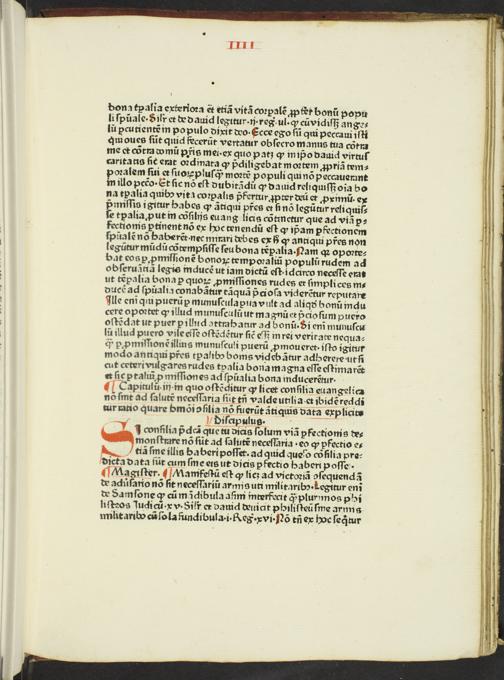 IIII
bona tp̄alia exteriora ēt etiā vitā corpalē ꝓpter bonū popu
li spūale. Sil'r et de david legitur .ij. reg. ul. ꝙ cū vidiss; ange-
lū ꝑcutientē in populo dixit deo. Ecce ego sū qui peccavi isti
qui oves sūt quid fecerūt vertatur obsecro manus tua cōtra
me et cōtra domū pr̄is mei. ex quo patꝫ ꝙ in ip̄o david virtus
caritatis sic erat ordinata ꝙ p̄diligebat mortem ꝓpriā tem-
poralem sui et suoꝝ plusꝙ̄ mortē populi qui nō peccaverant
in illo pctō. Et sic nō est dubitādū ꝙ david reliquiss; oīa bo
na tp̄alia quibꝰ vita corpalis p̄fertur. ꝓpter deū et ꝓximū. ex
p̄missis igitur habes ꝙ antiqui pr̄es et si nō legūtur reliquis-
se tp̄alia, put in cōsilijs euangelicis cōtinetur que ad viā ꝑ-
fectionis ꝑtinent nō ex hoc tenendū est ꝙ ip̄am ꝑfectionem
spūalē nō haberēt. nec mirari debes ex h' ꝙ antiqui pr̄es non
legūtur mūdū cōtempsisse seu bona tp̄alia. Nam ꝙ oporte-
bat eos ꝑ ꝓmissionē bonoꝝ temporaliū populū rudem ad
observātiā legis inducē ut iam dictū est. idcirco necesse erat
ut tp̄alia bona ꝑ quoꝝ ꝓmissiones rudes et simplices in-
ducē ad spūalia conabātur tāquā p̄ciosa viderētur reputare
Ille enī qui puerū ꝑ munuscula pua vult ad aliqd' bonū indu
cere oportet ꝙ illud munusculū ut magnū et p̄ciosum puero
ostēdat ut puer ꝑ illud attrahatur ad bonū. Si enī munuscu
lū illud puero vile esse ostēdētur sic ess; in rei veritate nequa-
ꝙ̄ ꝑ ꝓmissionē illius munusculi puerū ꝓmoveret. isto igitur
modo antiqui pr̄es tp̄alibꝰ bonis videbātur adherere ut si-
cut ceteri vulgares rudes tp̄alia bona magna esse estimarēt
et sic ꝑ taliū ꝓmissiones ad spūalia bona inducerētur.
¶ Capitulū .iij. in quo ostēditur ꝙ licet consilia euangelica
nō sint ad salutē necessaria sūt tn̄ valde utilia. et ibidē reddi
tur ratio quare hm̄oi cōsilia nō fuerūt ātiquis data explicite
¶ Discipulus.
Si consilia p̄dc̄a que tu dicis solum viā ꝑfectionis de-
monstrare nō sūt ad salutē necessaria. eo ꝙ ꝑfectio e-
tiā sine illis haberi posset. ad quid queso consilia pre-
dicta data sūt cum sine eis ut dicis ꝑfectio haberi posse.
¶ Magister. ¶ Manifestū est ꝙ licꝫ ad victoriā cōsequendā
de adūsario nō sit necessariū armis uti militaribꝰ. Legitur enī
de Samsone ꝙ cū mādibula asini interfecit ꝙ̄plurimos phi
listeos Iudicū .xv. Sil'r et david devicit philisteū sine armis
militaribꝰ cū sola fundibula .i. Reg. xvi. Nō tn̄ ex hoc seq̄tur